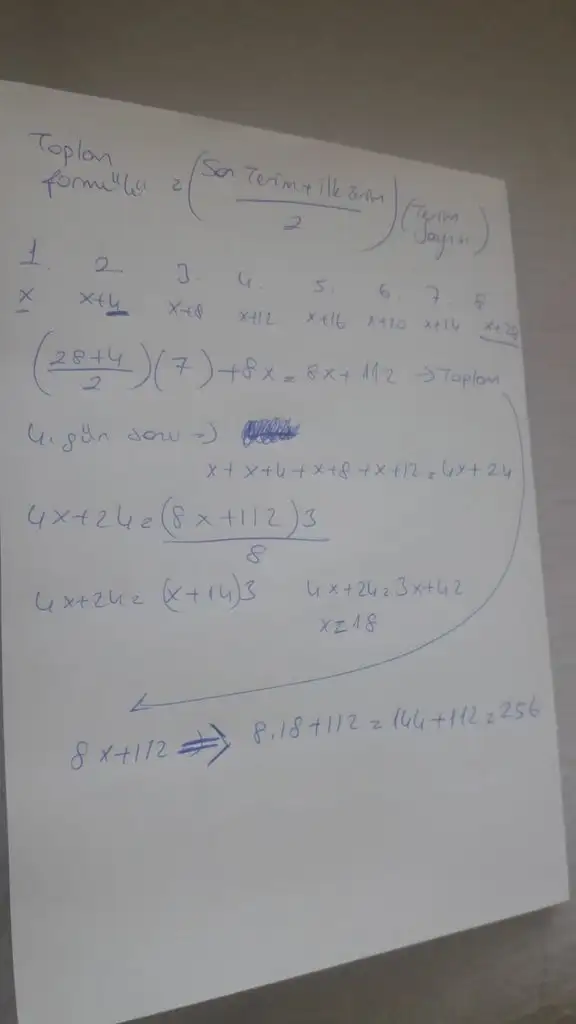 Toplam
formülü = (Son Terim + ilk terim / 2) (Terim sayısı)
1. 2 3. 4. 5. 6. 7. 8
x x+4 x+8 x+12 x+16 x+20 x+24 x+28
(28+4 / 2)(7) + 8x = 8x + 112 → Toplam
4. gün sonu =>
x + x+4 + x+8 + x+12 = 4x + 24
4x+24 = (8x+112)3 / 8
4x+24 = (x+14)3 4x+24 = 3x+42
x = 18
8x+112 ⇒ 8.18+112 = 144+112 = 256